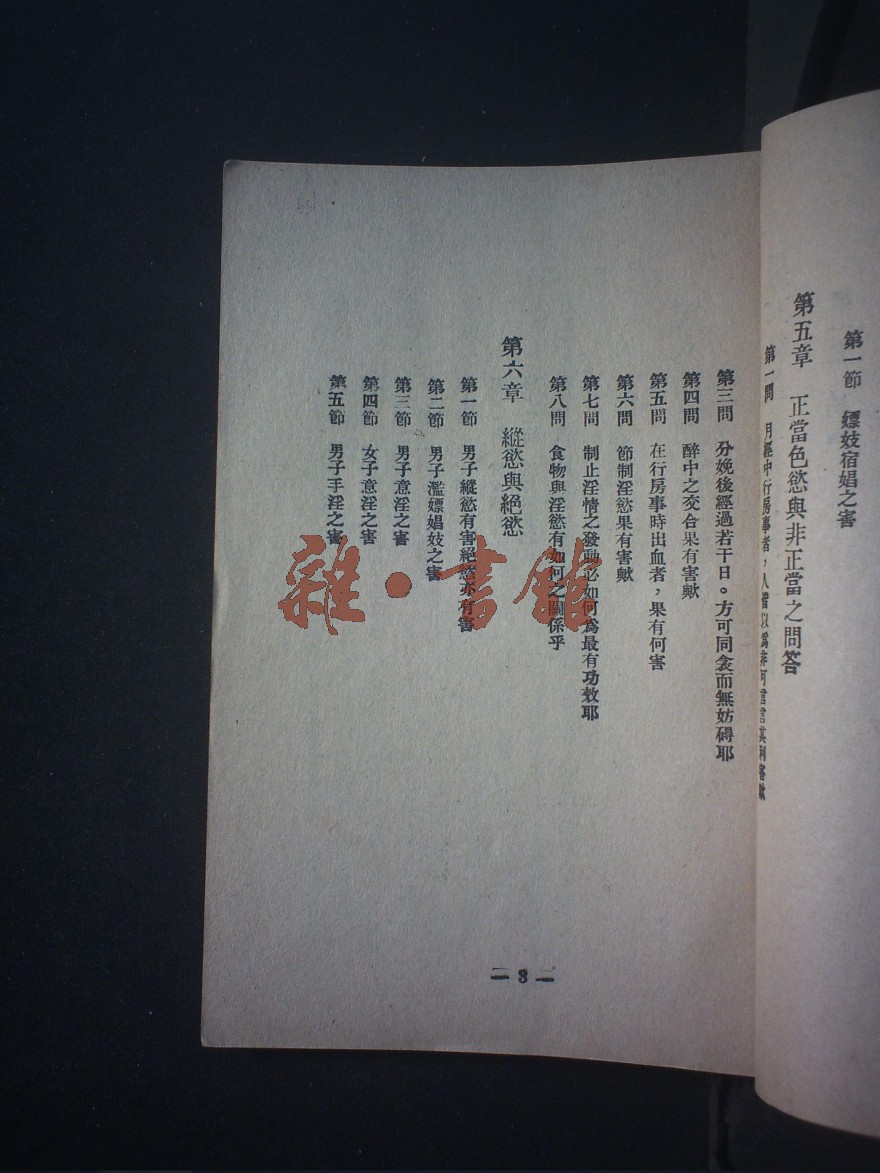 第一節　嫖妓宿娼之害
第五章　正當色慾與非正當之問答
第一問　月經中行房事者，人皆以為非可言
第三問　分娩後經過若干日。方可同衾而無妨碍耶
第四問　醉中之交合果有害歟
第五問　在行房事時出血者，果有何害
第六問　節制淫慾果有害歟
第七問　制止淫情之發動必如何爲最有功效耶
第八問　食物與淫慾有如何之關係乎
第六章　縱慾與絕慾
第一節　男子縱慾有害絕慾亦有害
第二節　男子濫嫖娼妓之害
第三節　男子意淫之害
第四節　女子意淫之害
第五節　男子手淫之害
— 3 —
雜·書館